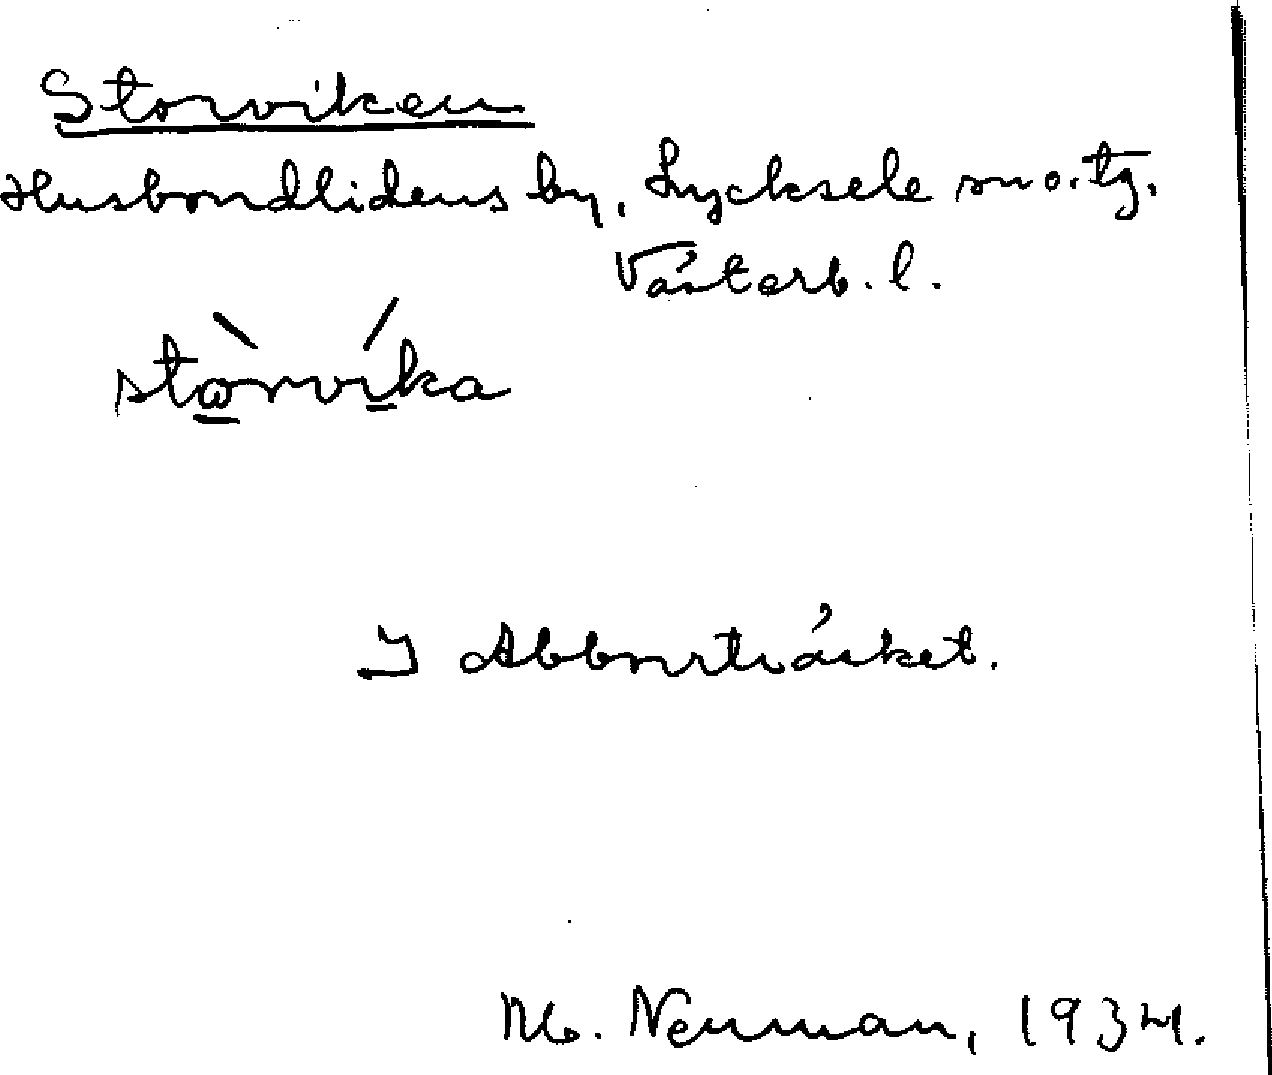 Storviken
Husbondlidens by, Lycksele sn o. tg.
Västerb. l.
stòrvíka
I Abborrträsket.
M. Neuman, 1934.